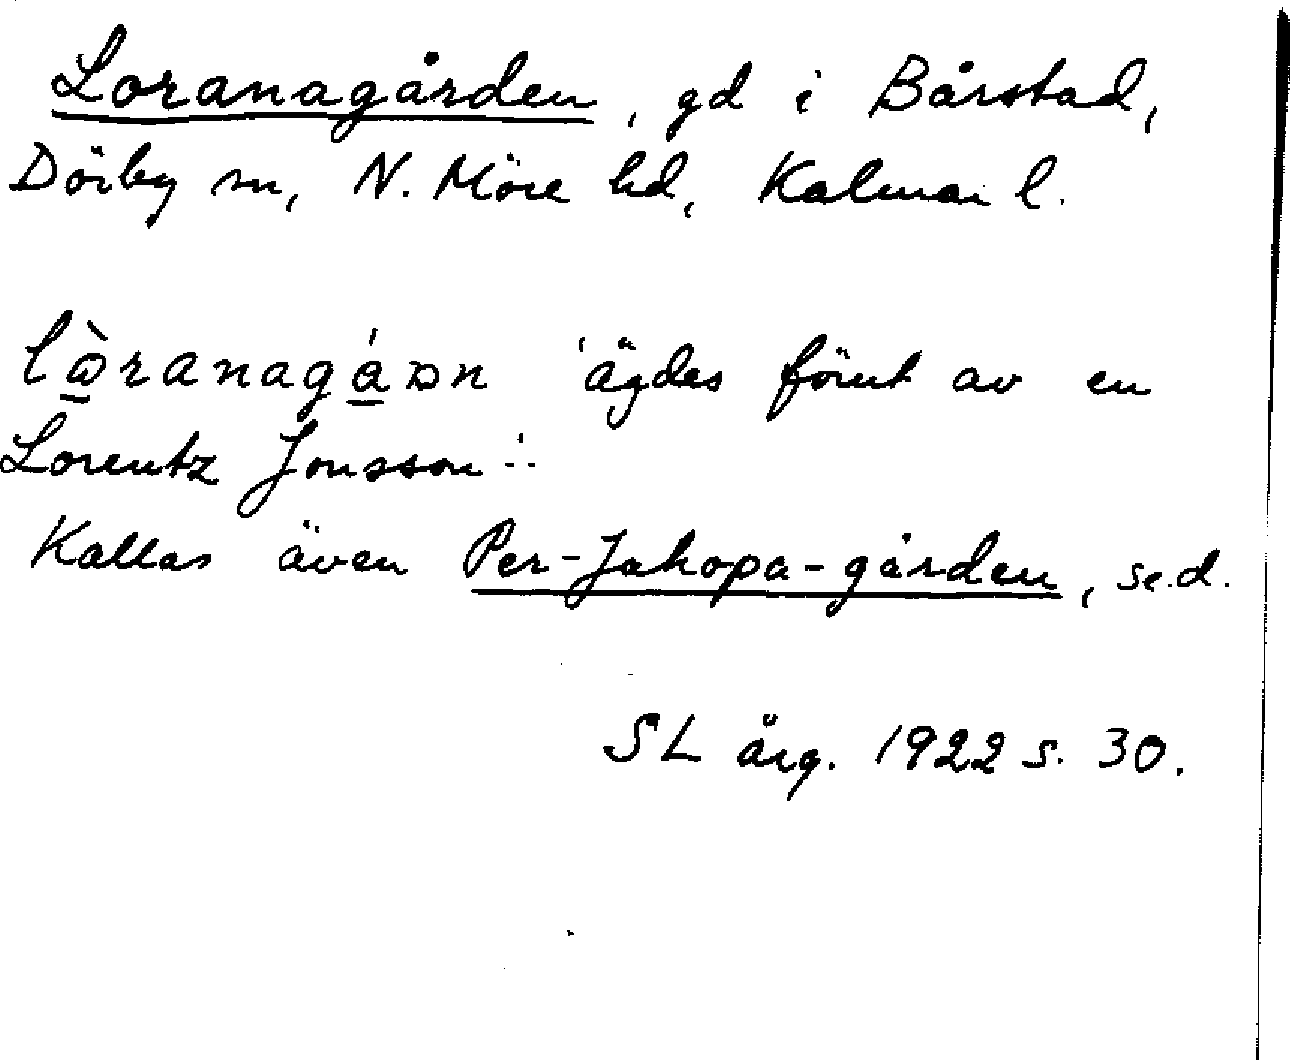 Loranagården, gd i Bårstad,
Dörby sn, N. Möre hd, Kalmar l.
'ägdes förut av en
Lorentz Jonsson'.
Kallas även Per-Jakopa-gården, se.d.
SL årg. 1922 s. 30.